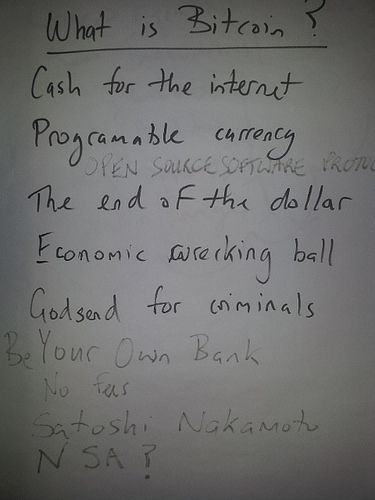 What is Bitcoin?
Cash for the internet
Programable currency
OPEN SOURCE SOFTWARE
The end of the dollar
Economic wrecking ball
Godsend for criminals
Be Your Own Bank
No fees
Satoshi Nakamoto
NSA?